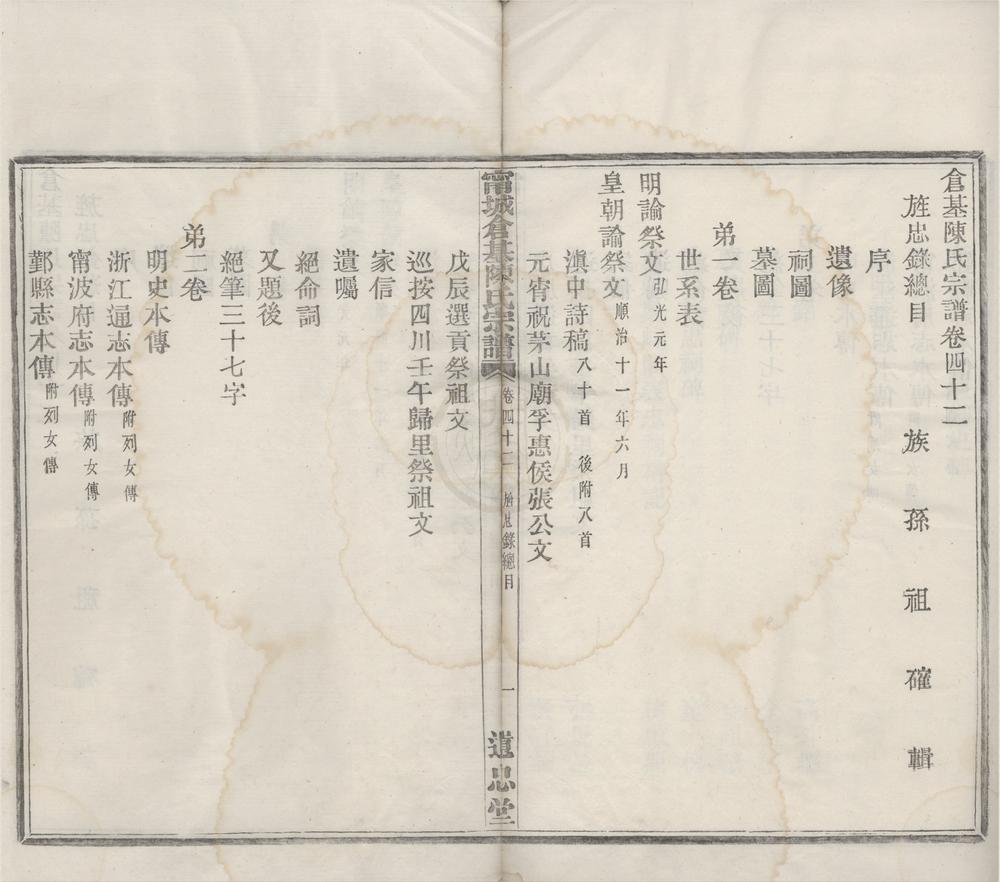 倉基陳氏宗譜卷四十二
旌忠錄總目　族孫祖確輯
序
遺像
祠圖
墓圖
弟一卷
世系表
明諭祭文弘光元年
皇朝諭祭文順治十一年六月
滇中詩稿八十首　後附八首
元宵祝茅山廟孚惠侯張公文
甯城倉基陳氏宗譜　卷四十二　旌忠錄總目　一　道忠堂
戊辰選貢祭祖文
巡按四川壬午歸里祭祖文
家信
遺囑
絕命詞
又題後
絕筆三十七字
弟二卷
明史本傳
浙江通志本傳附列女傳
甯波府志本傳附列女傳
鄞縣志本傳附列女傳